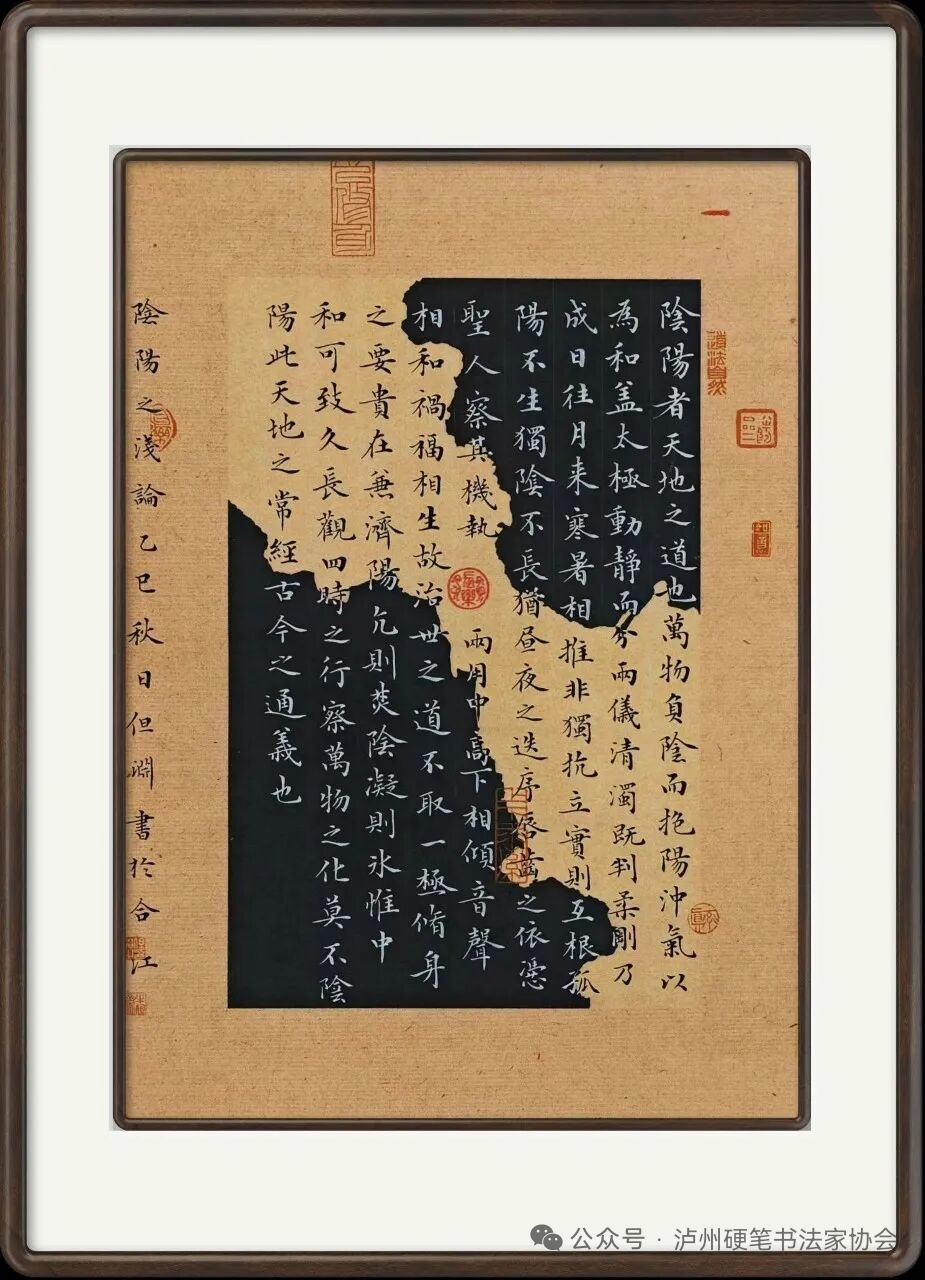 陰陽者天地之道也萬物負陰而抱陽沖氣以
為和盖太極動靜而分兩儀清濁既判柔剛乃
成日往月来寒暑相推非獨抗立實則互根孤
陽不生獨陰不長猶昼夜之迭序唇齒之依憑
聖人察其機執兩用中高下相傾音聲
相和禍福相生故治世之道不取一極脩身
之要貴在兼濟陽亢則焚陰凝則氷惟中
和可致久長觀四時之行察萬物之化莫不陰
陽此天地之常經古今之通義也
陰陽之淺論乙巳秋日但淵書於合江
道法自然
公众号·泸州硬笔书法家协会